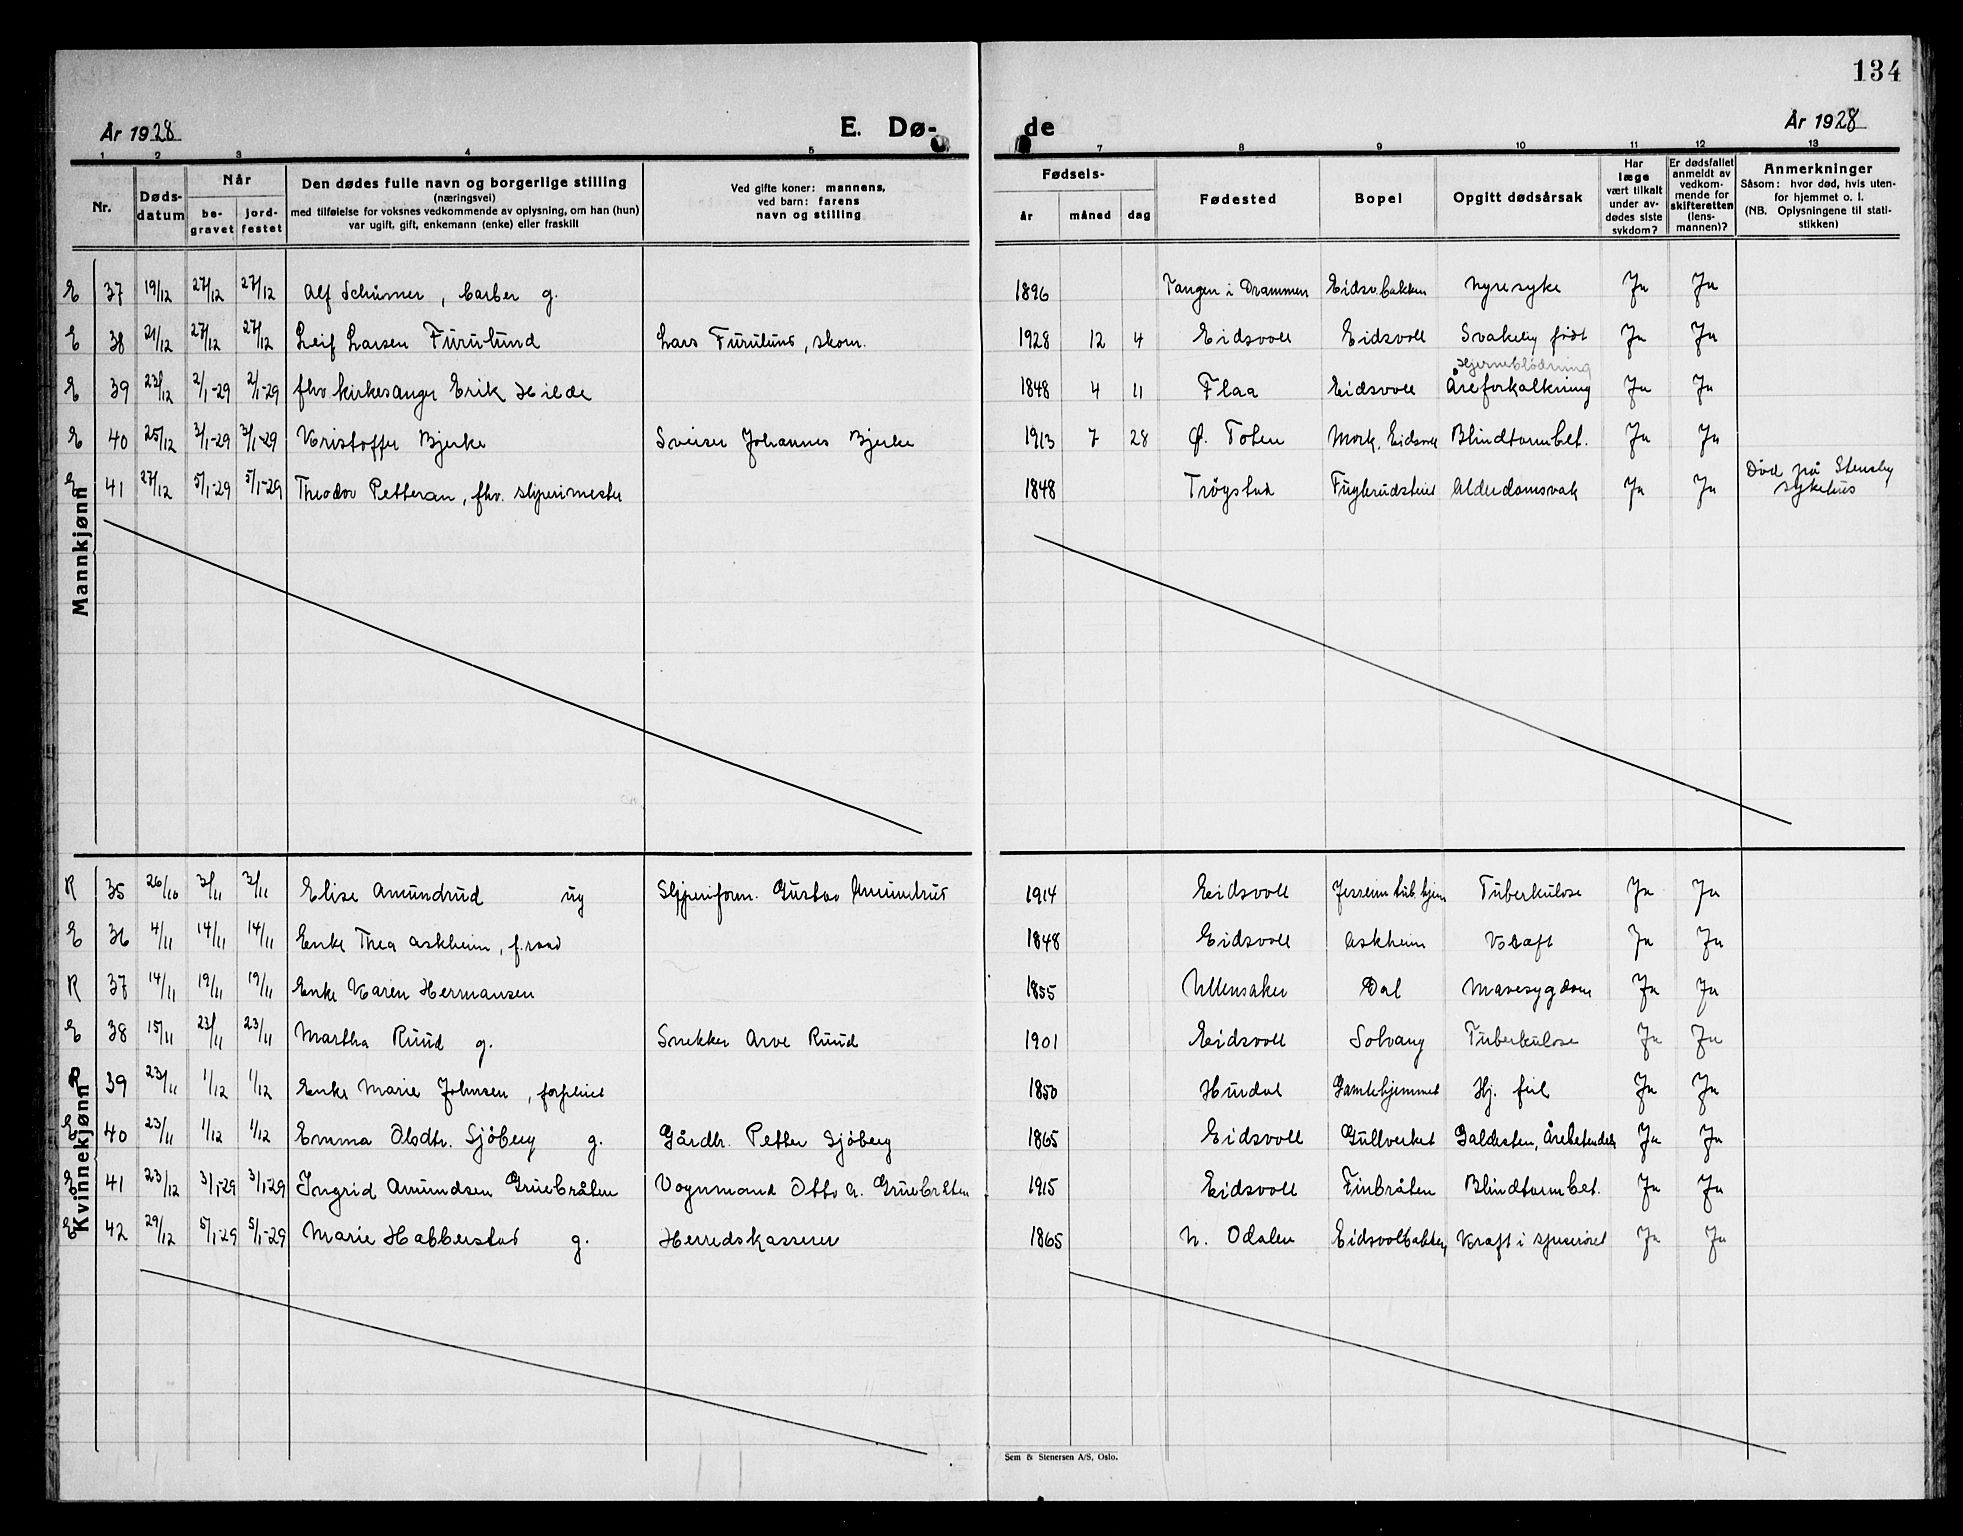 134
År 1928 E. Dø- de År 1928
1 2 3 4 5 7 8 9 10 11 12 13
Nr. Døds-datum Når be-gravet jord-festet Den dødes fulle navn og borgerlige stilling (næringsvei) med tilføielse for voksnes vedkommende av oplysning, om han (hun) var ugift, gift, enkemann (enke) eller fraskilt Ved gifte koner: mannens, ved barn: farens navn og stilling Fødsels- år måned dag Fødested Bopel Opgitt dødsårsak Har læge vært tilkalt under av-dødes siste sykdom? Er dødsfallet anmeldt av vedkom-mende for skifteretten (lens-mannen)? Anmerkninger Såsom: hvor død, hvis uten-for hjemmet o. l. (NB. Oplysningene til stati-stikken)
Mannkjønn
E 37 19/12 27/12 27/12 Alf Schirmer, barber g. 1896 Tangen i Drammen Eidsv.bakken Nyresyke Ja Ja
E 38 21/12 27/12 27/12 Leif Larsen Furulund Lars Furulund, skom. 1928 12 4 Eidsvoll Eidsvoll Svakelig født Ja Ja
Hjerneblødning
E 39 23/12 2/1-29 2/1-29 fhv. kirkesanger Erik Hilde 1848 4 11 Flaa Eidsvoll Åreforkalkning Ja Ja
E 40 25/12 3/1-29 3/1-29 Kristoffer Bjerke Sveiser Johannes Bjerke 1913 7 28 Ø. Toten Mork, Eidsvoll Blindtarmbet. Ja Ja
E 41 27/12 5/1-29 5/1-29 Theodor Petterson, fhv. sliperimester 1848 Trøgstad Alderdomsvak Ja Ja Død på Stensby
sykehus
Kvinnekjønn
R 35 26/10 3/11 3/11 Elise Amundrud ug Sliperiform. Gustav Amundrud 1914 Eidsvoll Jessheim tub.hjem Tuberkulose Ja Ja
E 36 4/11 14/11 14/11 Enke Thea Askheim, 1848 Eidsvoll Askheim Kraft Ja Ja
R 37 14/11 19/11 19/11 Enke Karen Hermansen 1855 Ullensaker Dal Mavesygdom Ja Ja
E 38 15/11 23/11 23/11 Martha Ruud g. Snekker Arve Ruud 1901 Eidsvoll Solvang Tuberkulose Ja Ja
R 39 23/11 1/12 1/12 Enke Marie Johnsen, forpleiet 1850 Hurdal Gamlehjemmet Hj. feil Ja Ja
E 40 23/11 1/12 1/12 Emma Olsdtr. Sjöberg g. Gårdbr. Petter Sjöberg 1865 Eidsvoll Gullverket Galdesten, Årebetendels Ja Ja
E 41 23/12 3/1-29 3/1-29 Ingrid Amundsen Gruebråten Vognmand Otto A. Gruebråten 1915 Eidsvoll Finbråten Blindtarmbet. Ja Ja
E 42 29/12 5/1-29 5/1-29 Marie Habberstad g. Herredskasserer 1865 N. Odalen Eidsvollbakken Kraft i spiserøret Ja Ja
Sem & Stenersen A/S, Oslo.